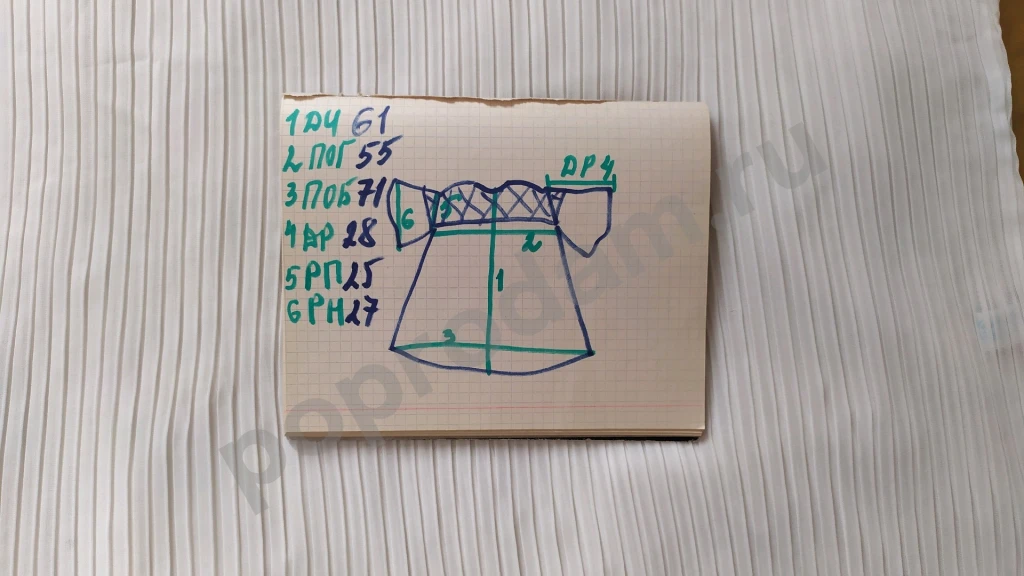 1 ДИ 61
2 ПОГ 55
3 ПОБ 71
4 ДР 28
5 РП 25
6 РН 27
ДР 4
6
5
2
1
3
poprodam.ru